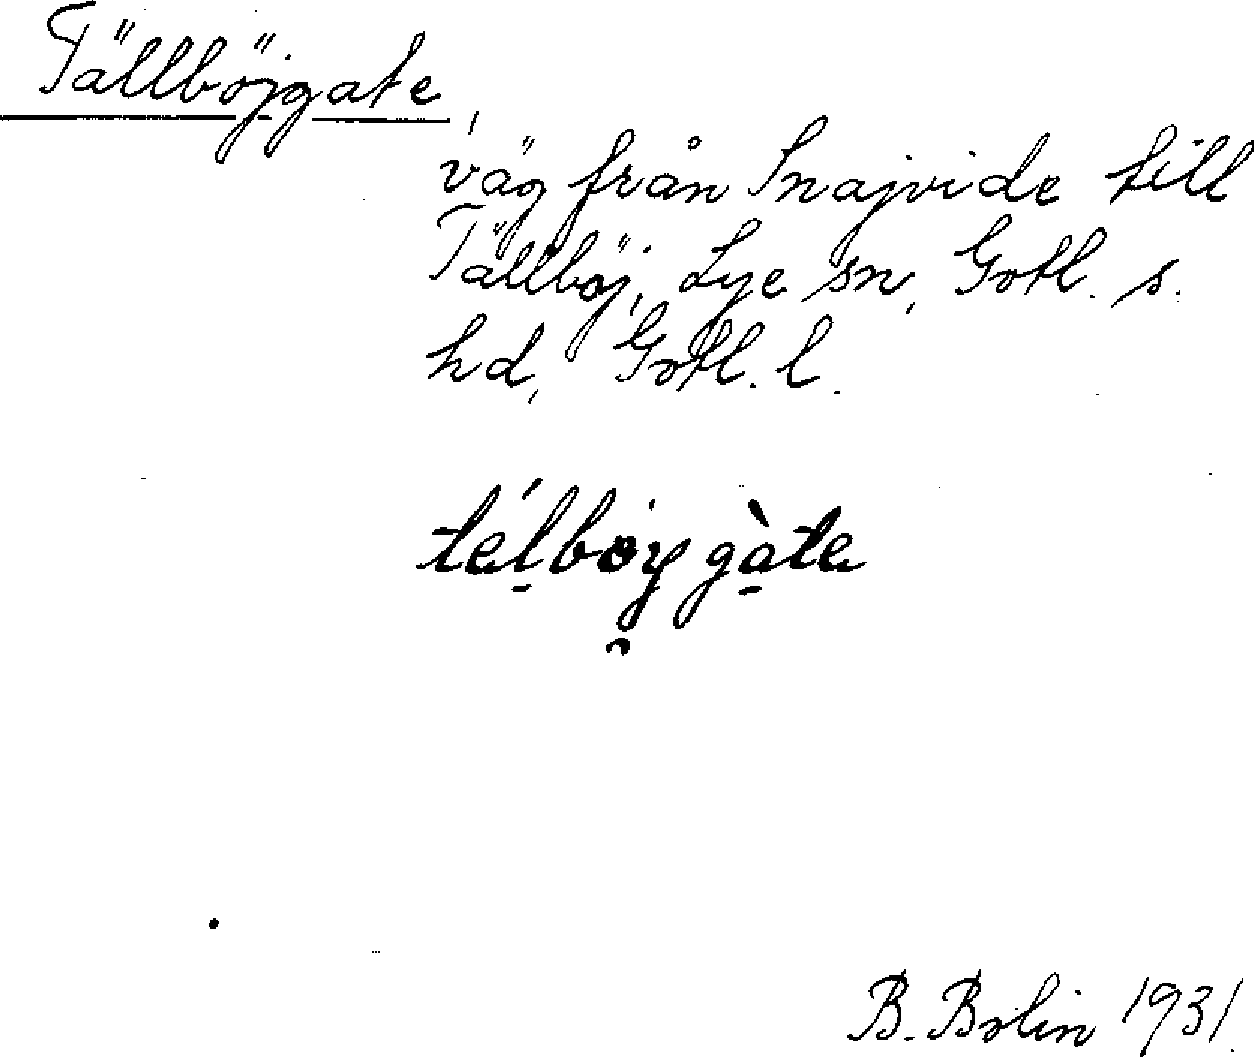 Tällböjgate,
väg från Snajvide till
Tällböj, Lye sn, Gotl. s.
hd, Gotl. l.
télboygàte
B. Bolin 1931.